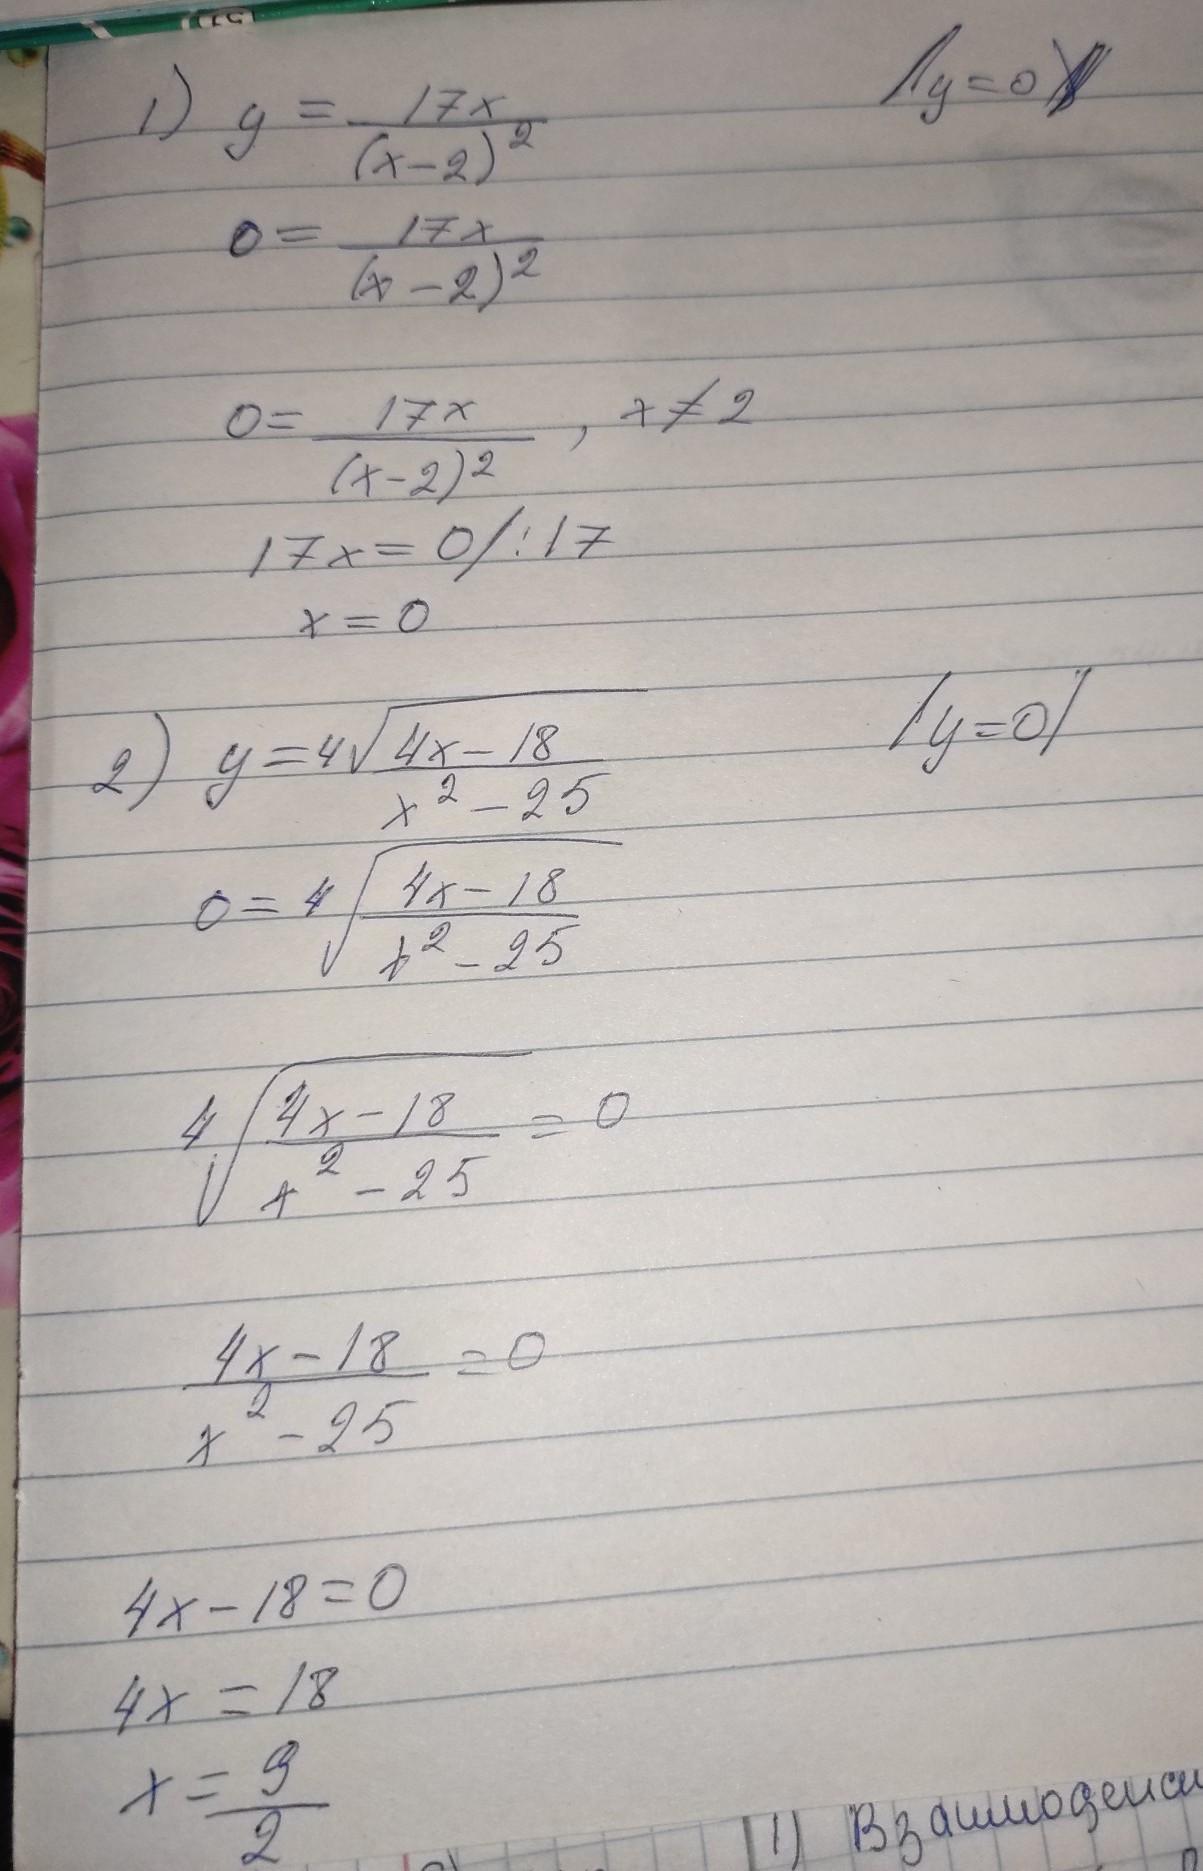 1) y = 17x / (x-2)² /y=0/
0 = 17x / (x-2)²
0 = 17x / (x-2)² , x≠2
17x = 0 /:17
x = 0
2) y = ⁴√((4x-18) / (x²-25)) /y=0/
0 = ⁴√((4x-18) / (x²-25))
⁴√((4x-18) / (x²-25)) = 0
(4x-18) / (x²-25) = 0
4x-18=0
4x = 18
x = 9/2
1)